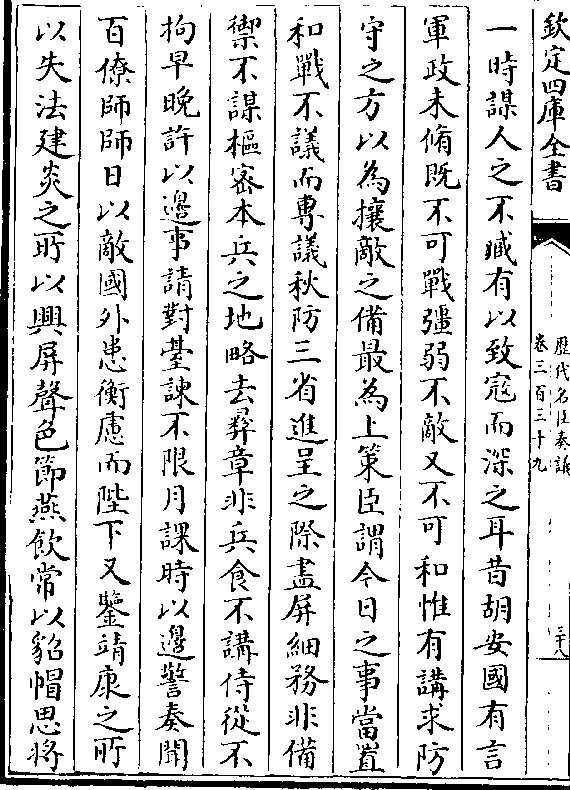 欽定四庫全書
歷代名臣奏議
卷三百三十九
三十八
一時謀人之不臧有以致寇而深之耳昔胡安國有言
軍政未脩既不可戰彊弱不敵又不可和惟有講求防
守之方以為攘敵之備最為上策臣謂今日之事當置
和戰不議而專議秋防三省進呈之際盡屏細務非備
禦不謀樞宻本兵之地略去彛章非兵食不講侍從不
拘早晚許以邊事請對臺諫不限月課時以邊警奏聞
百僚師師日以敵國外患衡慮而陛下又鑒靖康之所
以失法建炎之所以興屏聲色節燕飲常以貂帽思將